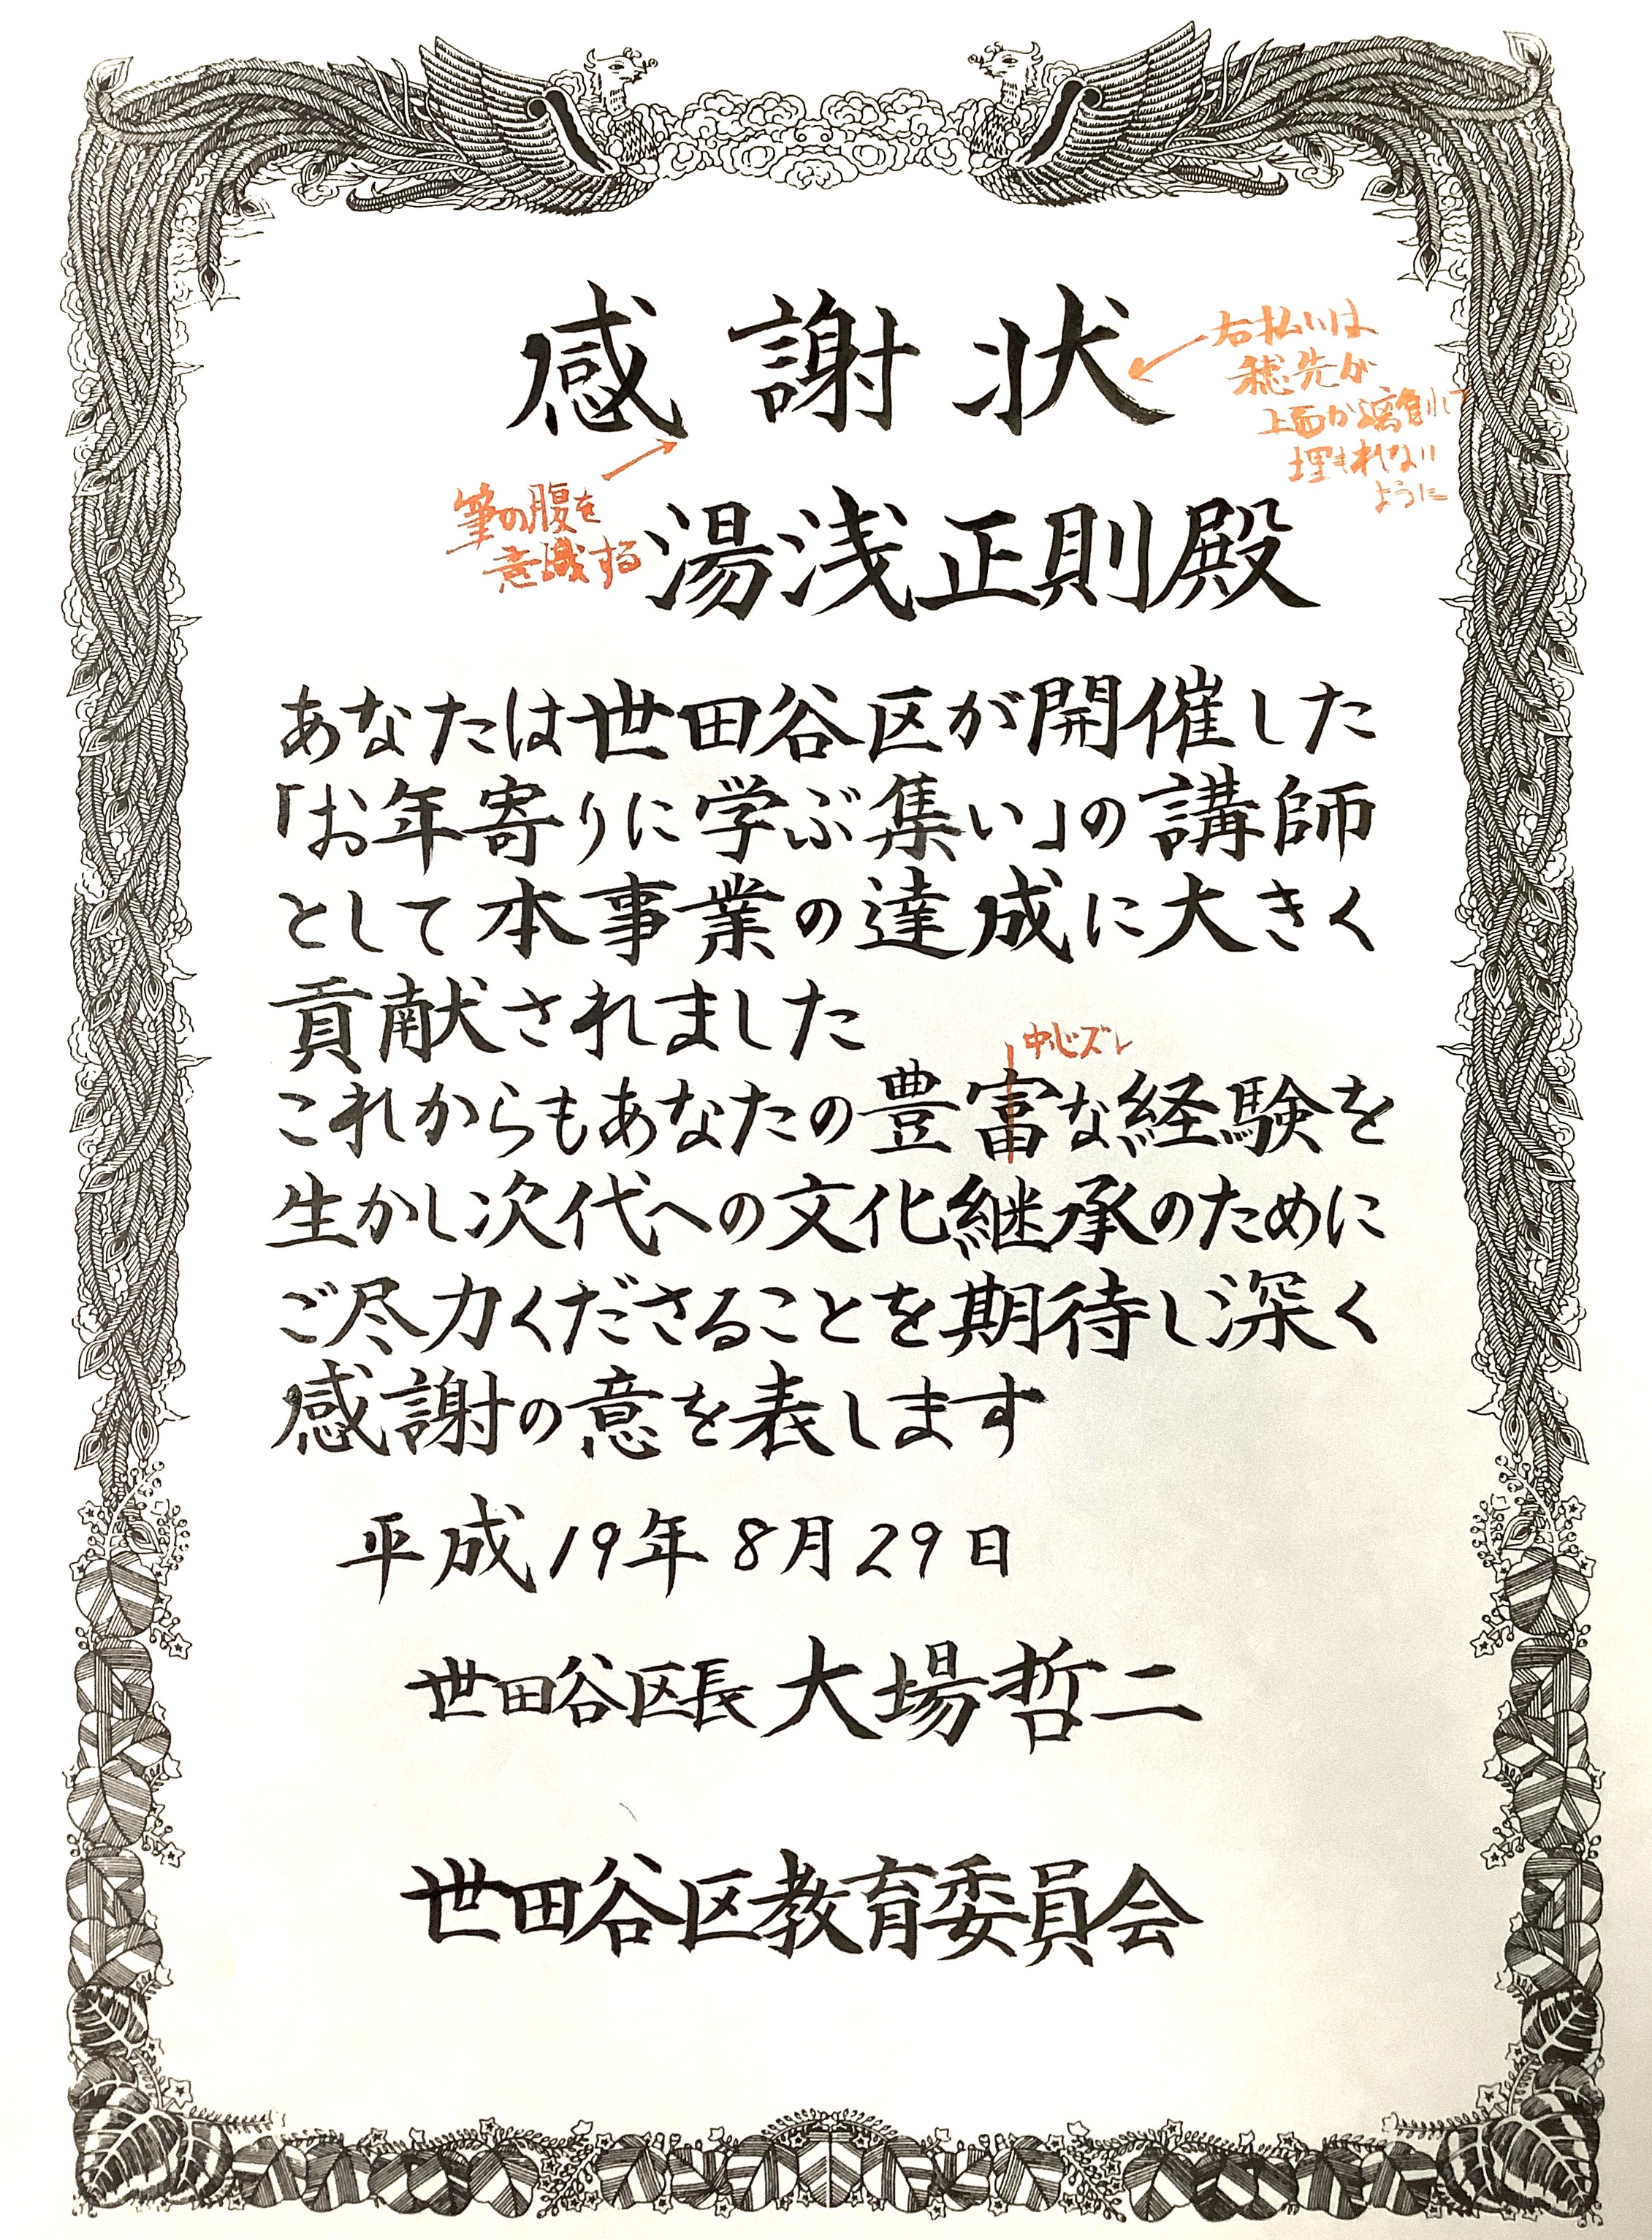 感謝状
右払いは
穂先が
上面から
埋もれない
ように
筆の腹を
意識する
湯浅正則殿
あなたは世田谷区が開催した
「お年寄りに学ぶ集い」の講師
として本事業の達成に大きく
貢献されました
中心ズレ
これからもあなたの豊富な経験を
生かし次代への文化継承のために
ご尽力くださることを期待し深く
感謝の意を表します
平成19年8月29日
世田谷区長 大場哲二
世田谷区教育委員会